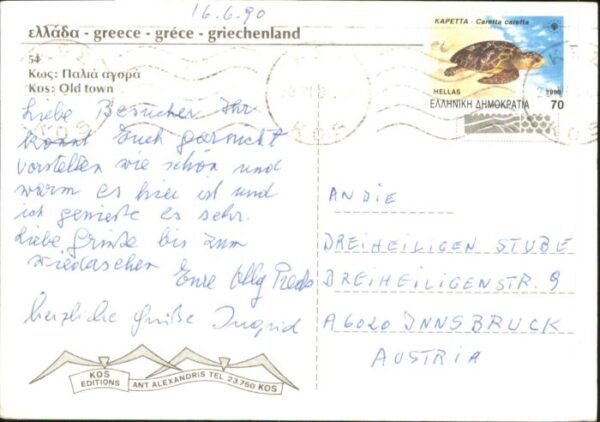 16.6.90
ελλάδα - greece - gréce - griechenland
54
Κως: Παλιά αγορά
Kos: Old town
ΚΑΡΕΤΤΑ - Caretta caretta
HELLAS 1990
ΕΛΛΗΝΙΚΗ ΔΗΜΟΚΡΑΤΙΑ 70
KOS
Liebe Besucher Ihr
könnt Euch garnicht
vorstellen wie schön und
warm es hier ist und
ich genieße es sehr.
Liebe Grüße bis zum
wiedersehen Eure
herzliche Grüße Ingrid
ANDIE
DREIHEILIGEN STUBE
DREIHEILIGENSTR. 9
A6020 INNSBRUCK
AUSTRIA
KOS EDITIONS
ANT. ALEXANDRIS TEL. 23.750 KOS